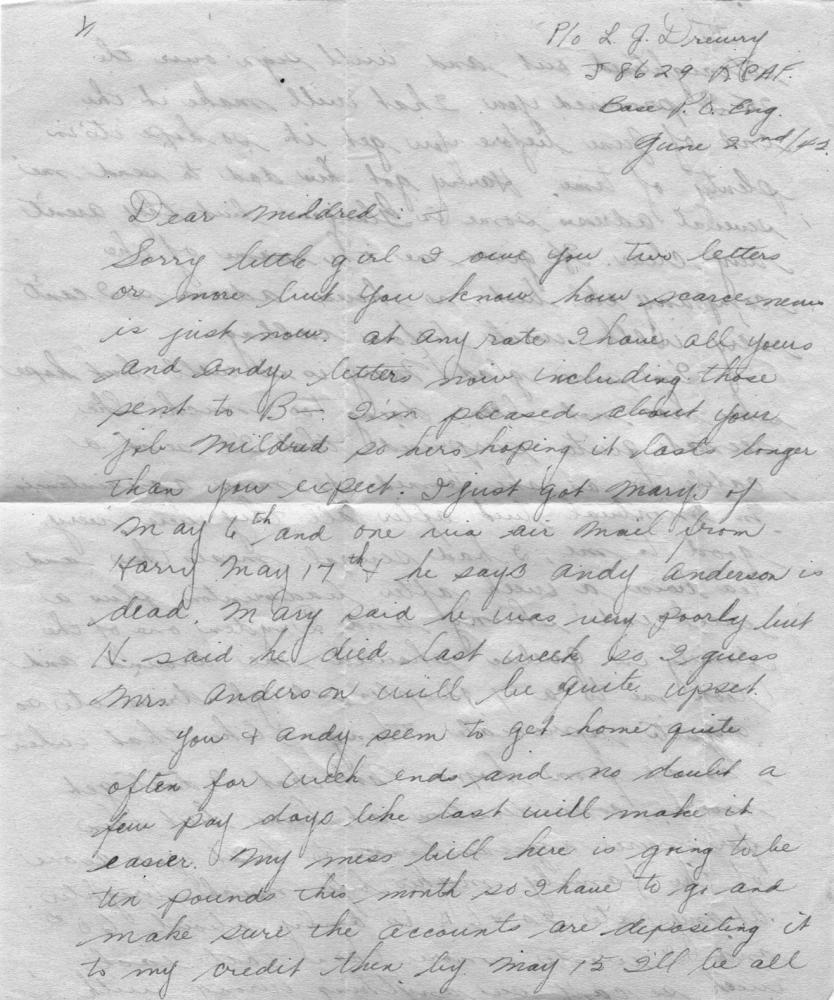 1/
P/o L. J. Drewry
J 8629 RCAF.
Base P.O. Eng.
June 2nd/42.
Dear Mildred: +
Sorry little girl I owe you two letters
or more but you know how scarce news
is just now. At any rate I have all yours
and Andys letters now including those
sent to B—. I'm pleased about your
job Mildred so hers hoping it lasts longer
than you expect. I just got Marys of
May 6th and one via air mail from
Harry May 17th & he says Andy Anderson is
dead. Mary said he was very poorly but
H. said he died last week so I guess
Mrs Anderson will be quite upset.
You & Andy seem to get home quite
often for week ends and no doubt a
few pay days like last will make it
easier. My mess bill here is going to be
ten pounds this month so I have to go and
make sure the accounts are depositing it
to my credit then by May 15 I'll be all